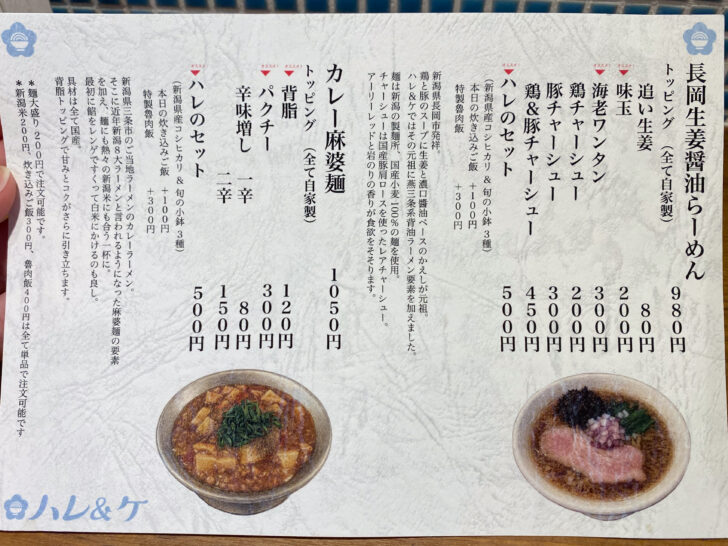 長岡生姜醤油らーめん 980円
トッピング (全て自家製)
追い生姜 80円
オススメ！ 味玉 200円
オススメ！ 海老ワンタン 300円
鶏チャーシュー 200円
豚チャーシュー 300円
鶏&豚チャーシュー 450円
オススメ！ ハレのセット 500円
(新潟県産コシヒカリ & 旬の小鉢3種)
本日の炊き込みご飯 +100円
特製魯肉飯 +300円
新潟県長岡市発祥。
鶏と豚のスープに生姜と濃口醬油ベースのかえしが元祖。
ハレ&ケではその元祖に燕三条系背油ラーメン要素を加えました。
麺は新潟の製麺所、国産小麦100%の麺を使用。
チャーシューは国産豚肩ロースを使ったレアチャーシュー。
アーリーレッドと岩のりの香りが食欲をそそります。
カレー麻婆麺 1050円
トッピング (全て自家製)
オススメ！ 背脂 120円
オススメ！ パクチー 300円
辛味増し 一辛 80円
二辛 150円
オススメ！ ハレのセット 500円
(新潟県産コシヒカリ & 旬の小鉢3種)
本日の炊き込みご飯 +100円
特製魯肉飯 +300円
新潟県三条市のご当地ラーメンのカレーラーメン。
そこに近年新潟8大ラーメンと言われるようになった麻婆麺の要素
を加え、麺にも熱々の新潟米にも合う一杯に。
最初に餡をレンゲですくって白米にかけるのも良し。
具材は全て国産。
背脂トッピングで甘みとコクがさらに引き立ちます。
*麺大盛り200円で注文可能です。
*新潟米200円、炊き込みご飯300円、魯肉飯400円は全て単品で注文可能です
ハレ&ケ